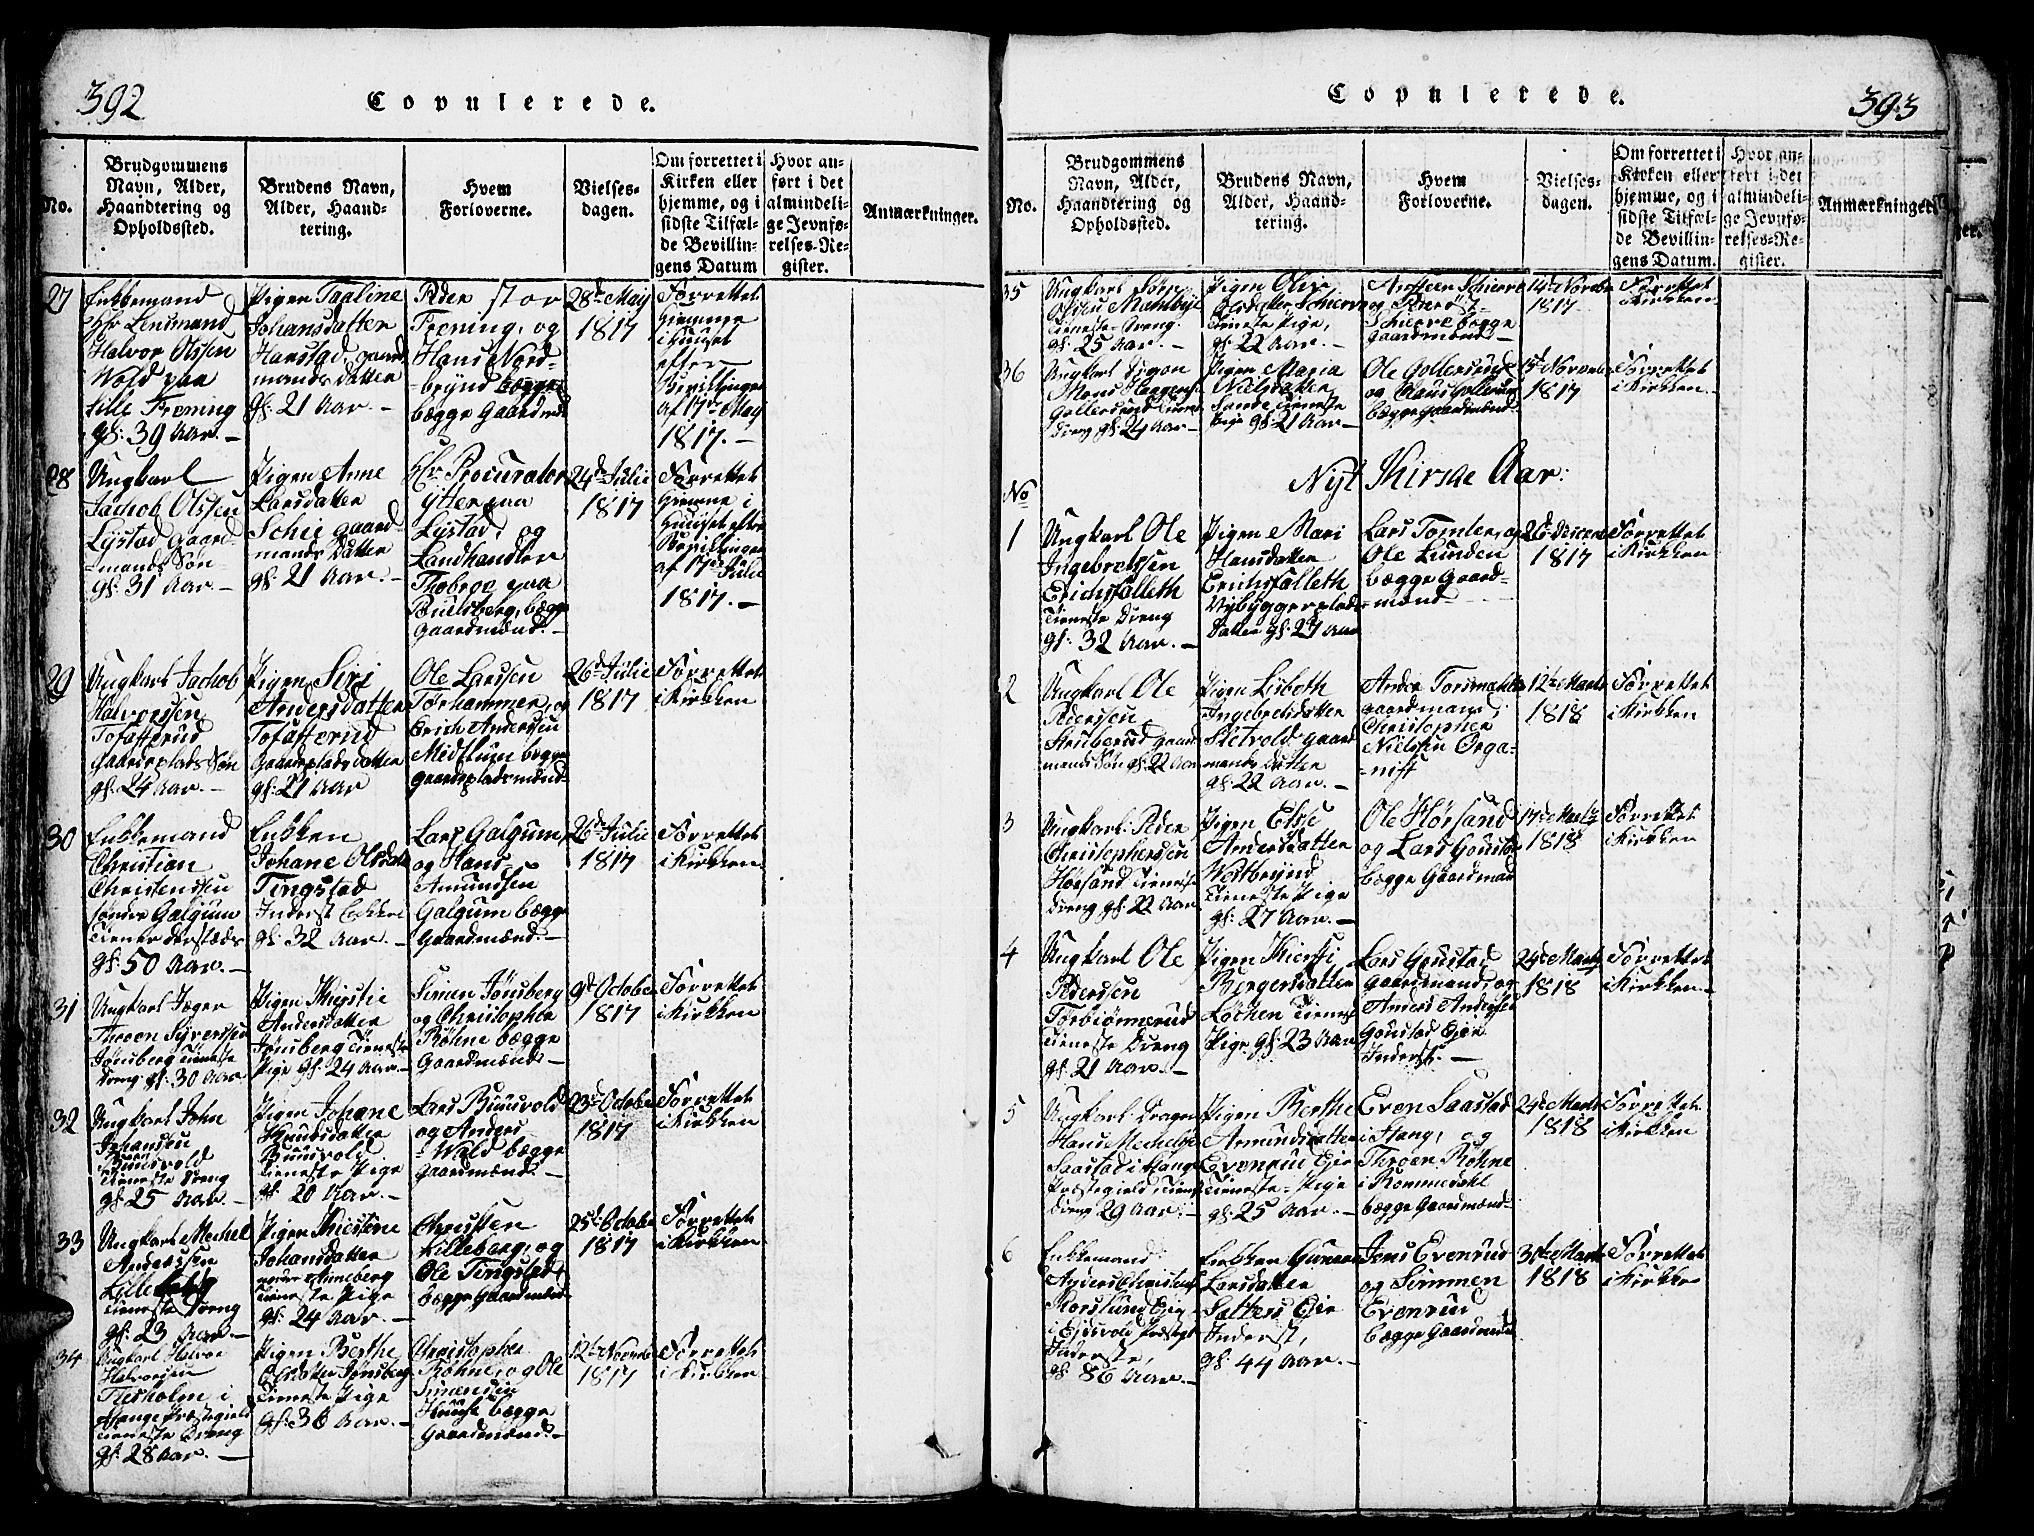 392
Copulerede.
No.
Brudgommens
Navn, Alder,
Haandtering og
Opholdssted.
Brudens Navn,
Alder, Haand-
tering.
Hvem
Forloverne.
Vielses-
dagen.
Om forrettet i
Kirken eller
hjemme, og i
sidste Tilfæl-
de Bevillin-
gens Datum
Hvor an-
ført i det
almindeli-
ge Jevnfø-
relses-Re-
gister.
Anmærkninger.
27
Enkkemand
Hr Lensmand
Halvor Olssen
Wold paa
Lille Frening
gl: 39 Aar. –
Pigen Pauline
Johansdatter
Harstad, gaard
mands Datter
gl: 21 Aar. –
Peder stor
Frening, og
Hans Nord-
-brynd
bægge Gaardmnd
28de May
1817
Forrettet
hiemme
i huuset
efter
Bevillingen
af 17de May
1817. –
28
Ungkarl
Jachob Olssen
Lystad Gaard-
-mands Søn
gl: 31 Aar. –
Pigen Anne
Larsdatter
Schie gaard-
mands Datter
gl: 21 Aar. –
Hr Procurator
Ytter paa
Lystad, og
Landhandler
Thobroe paa
bægge
Gaardmænd. –
24de Julie
1817
Forrettet
hiemme i
Huuset efter
Bevillingen
af 17de Julie
1817. –
29
Ungkarl Jachob
Halvorssen
Tofasterud
Gaardeplads Søn
gl: 24 Aar. –
Pigen Siri
Andersdatter
Tofasterud
Gaardeplads datter
gl: 21 Aar
Ole Larssen
Torhammer, og
Erich Anderssen
Midtlum begge
gaardepladsmænd
26de Julie
1817
Forrettet
i Kirkken
30
Enkkemand
Christian
Christenssen
søndre Galgum
Tiener dersteds
gl: 50 Aar. –
Enkken
Johane Olsdatter
Tingstad
Inderst Enkke
gl: 32 Aar. –
Lars Galgum,
og Hans
Amundsen
Galgum bægge
Gaardmænd. –
26de Julie
1817
Forrettet
i Kirkken
31
Ungkarl Jæger
Throen Syverssen
Jønsberg Tieneste
dreng gl: 30 Aar
Pigen Kirstie
Andersdatter
Jønsberg Tieneste
Pige gl: 24 Aar. –
Simen Jønsberg
og Christopher
Røhne bægge
Gaardmænd –
9de October
1817
Forrettet
i Kirkken
32
Ungkarl John
Johansen
Buusvold
Tieneste dreng
gl: 25 Aar. –
Pigen Johane
Knudsdatter
Buusvold
Tieneste Pige
gl: 20 Aar. –
Lars Buusvold
og Anders
Wald bægge
Gaardmænd. –
23de October
1817
Forrettet
i Kirkken
33
Ungkarl Mechel
Anderssen
Lilleberg
Tieneste Dreng
gl: 23 Aar –
Pigen Kiestine
Johansdatter
Tieneste Pige
gl: 24 Aar. –
Christen
Lilleberg, og
Ole Tingstad,
bægge Gaardmænd
25de October
1817
Forrettet
i Kirkken
34
Ungkarl Halvor
Halvorsen
Fiesholm i
Stange Præstegield
Tieneste Dreng
gl: 28 Aar. –
Pigen Berthe
Olsdatter Jønsberg
Tieneste Pige
gl: 36 Aar. –
Christopher
Røhne, og Ole
Simensen
bægge
Gaardmænd. –
12te November
1817
Forrettet
i Kirkken
Copulerede.
393
No.
Brudgommens
Navn, Alder,
Haandtering og
Opholdssted.
Brudens Navn,
Alder, Haand-
tering.
Hvem
Forloverne.
Vielses-
dagen.
Om forrettet i
Kirken eller
hjemme, og i
sidste Tilfæl-
de Bevillin-
gens Datum.
Hvor an-
ført i det
almindeli-
ge Jevnfø-
relses-Re-
gister.
Anmærkninger.
35
Ungkarl Søren
Olssen Mehlbye
Tieneste-Dreng.
gl: 25 Aar. –
Pigen Olive
Pedersdatter Schierre
Tieneste Pige,
gl: 22 Aar. –
Andreas Schierre
og Peder
Schierre begge
Gaardmænd –
14de November
1817
Forrettet
i Kirkken
36
Ungkarl Dragon
Mons Haagens
Gollersrud Tieneste
Dreng gl: 24 Aar –
Pigen Maria
Nielsdatter
Sande Tieneste
Pige gl: 21 Aar –
Ole Gollersrud
og Claus Gollersrud
bægge gaardmænd.
15de November
1817
Forrettet
i Kirkken
Nyt Kirske Aar:
No
1
Ungkarl Ole
Ingebretssen
Erichsfalleth
Tieneste Dreng
gl: 32 Aar. –
Pigen Mari
Hansdatter
Erichsfalleth
Nybyggerplads
Datter gl: 27 Aar
Lars Tomter, og
Ole Lunden
bægge Gaard-
-mænd
26de Decem
1817
Forrettet
i Kirkken
2
Ungkarl Ole
Pederssen
Skruberud gaard
mands Søn gl: 22 Aar
Pigen Lisbeth
Ingebretsdatter
Sletvold gaard
mands Datter
gl: 22 Aar. –
Ander
gaardmand,
Christopher
Nielssen Orga-
-nist
12te Marts
1818
Forrettet
i Kirkken
3
Ungkarl: Peder
Christopherssen
Hørsand Tieneste
dreng gl: 22 Aar
Pigen Else
Andersdatter
Westbrynd
Tieneste Pige
gl: 27 Aar. –
Ole Hørsand
og Lars Goustad
bægge Gaardmænd
17de Marts
1818
Forrettet
i Kirkken
4
Ungkarl Ole
Pederssen
Torbiønnerud
Tieneste Dreng
gl: 21 Aar. –
Pigen Kiersti
Børgersdatter
Løchen Tieneste
Pige gl: 23 Aar
Lars Goustad
Gaardmand, og
Anders Anderssen
Goustad Eier
Inderst. –
24de Marts
1818
Forrettet
i Kirkken –
5
Ungkarl Dragon
Hans Mechelssen
Saastad i Stange
Præstegield, Tieneste
Dreng 29 Aar. –
Pigen Berthe
Amundsdatter
Evenrud Eje
Tieneste-Pige
gl: 25 Aar. –
Even Saastad
i Stang, og
Throer Røhne
i Rommedahl
bægge Gaardmænd –
24de Marts
1818
Forrettet
i Kirkken
6
Enkkemand
Anders Christens
Korslund Eje
i Eidsvold Præstegl
Inderste,
gl: 86 Aar. –
Enkken Gunnor
Larsdatter
Sætters Eje
Inderst,
gl: 44 Aar. –
Jens Evenrud
og Simmen
Evenrud
bægge Gaardmænd
31te Marts
1818
Forrettet
i Kirkke